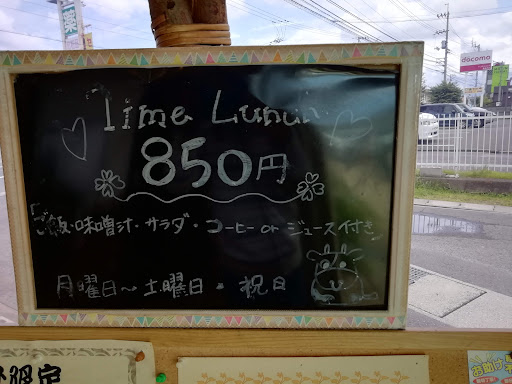 Lime Lunch
850円
ご飯・味噌汁・サラダ・コーヒー or ジュース付き
月曜日～土曜日・祝日
docomo
お助け
限定